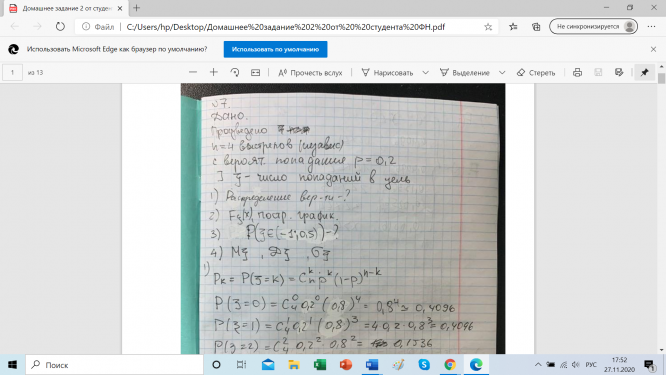 Домашнее задание 2 от студен
Файл | C:/Users/hp/Desktop/Домашнее%20задание%202%20от%20%20студента%20ФН.pdf
Не синхронизируется
Использовать Microsoft Edge как браузер по умолчанию?
Использовать по умолчанию
1 из 13
Прочесть вслух
Нарисовать
Выделение
Стереть
Дано.
Произведено
n=4 выстрелов (независ)
с вероят. попадание p=0,2
ξ- число попаданий в цель
1) Распределение вер-ти-?
2) Fξ(x), постр. график.
3) P(ξ∈(-1;0,5))-?
4) Mξ, Dξ, σξ
1)
Pk = P(ξ=k) = C_n^k p^k (1-p)^{n-k}
P(ξ=0) = C_4^0 0,2^0 (0,8)^4 = 0,8^4 = 0,4096
P(ξ=1) = C_4^1 0,2^1 (0,8)^3 = 4·0,2·0,8^3 = 0,4096
P(ξ=2) = C_4^2 0,2^2·0,8^2 = 0,1536
Поиск
РУС
17:52
27.11.2020